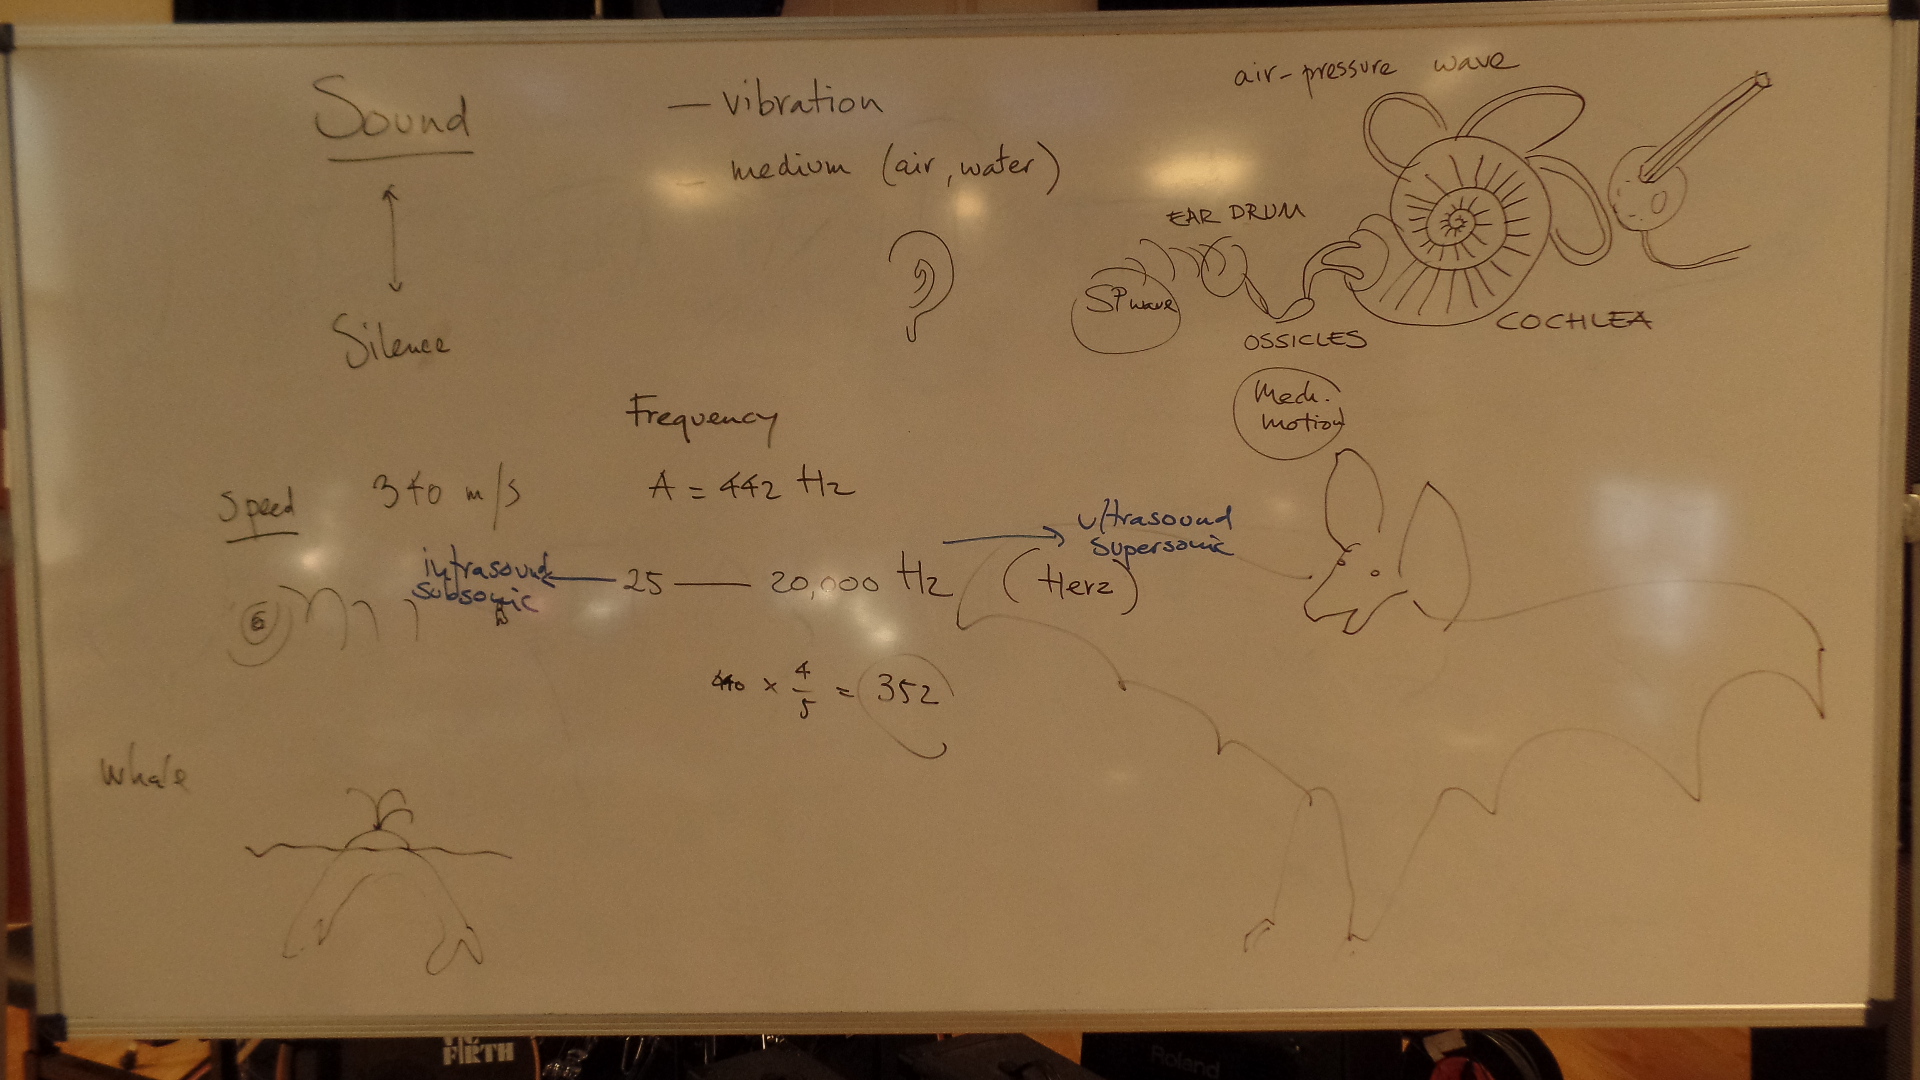 Sound
— vibration
- medium (air, water)
air-pressure wave
EAR DRUM
SP wave
OSSICLES
COCHLEA
Silence
Mech.
motion
Frequency
Speed 340 m/s
A = 442 Hz
ultrasound
supersonic
infrasound
subsonic
25 — 20,000 Hz (Herz)
440 × 4/5 = 352
Whale
FIRTH
Roland